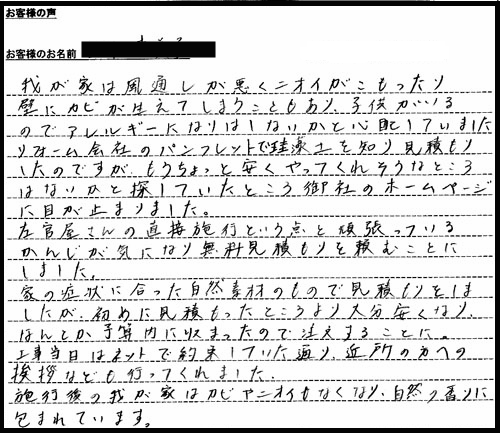 お客様の声
お客様のお名前
我が家は風通しが悪くニオイがこもったり
壁にカビが生えてしまうこともあり、子供がいる
のでアレルギーになりはしないかと心配していました
リフォーム会社のパンフレットで珪藻土を知り見積もり
したのですが、もうちょっと安くやってくれそうなところ
はないかと探していたところ御社のホームページ
に目が止まりました。
左官屋さんの直接施行という点と頑張っている
かんじが気になり無料見積もりを頼むことに
しました。
家の症状に合った自然素材のもので見積もりをしま
したが、初めに見積もったところより大分安くなり、
なんとか予算内に収まったので注文することに。
工事当日はネットで約束していた通り、近所の方への
挨拶なども行ってくれました。
施行後の我が家はカビやニオイもなくなり、自然の香りに
包まれています。